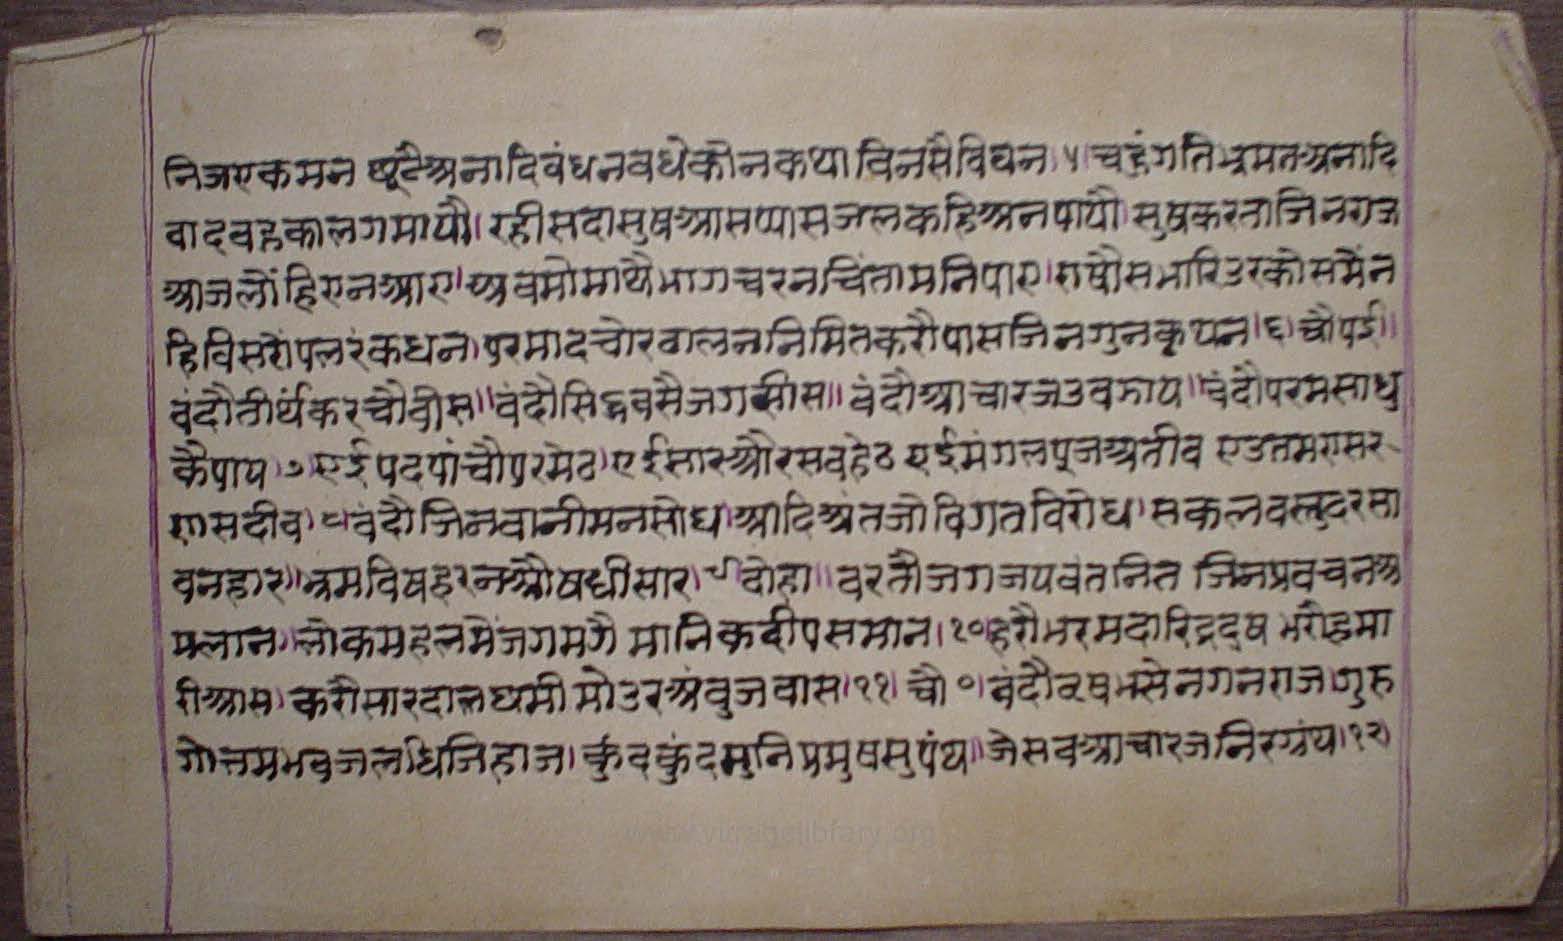 निजएकमन छूटैअनादिबंधनवधेकोनकथाविनसैविघन।५।चहुंगतिभ्रमतअनादि
वादवहुकालगमायौ।रहीसदासुषआसप्यासजलकहिअनपायौ।सुषकरताजिनराज
आजलौंहिएनआए।अवमोमाथैभागचरनचिंतामनिपाए।राषौसभारिउरकोसमैंन
हिविसरौंपलरंकधन।परमादचोरटालननिमितकरौंपासजिनगुनकथन।६।चौपई॥
वंदौतीर्थंकरचौवीस॥वंदौसिद्धवसैजगसीस॥वंदौआचारजउवझाय॥वंदौपरमसाधु
कैपाय।७।एईपदपांचौपरमेठ।एईसारऔरसवहेठ एईमंगलपूजअतीव एउतमएसर
णसदीव।८।वंदौजिनवानीमनसोध।आदिअंतजोविगतविरोध।सकलवस्तुदरसा
वनहार॥भ्रमविषहरनऔषधीसार।९।दोहा॥वरतौजगजयवंतनित जिनप्रवचनअ
मलान।लोकमहलमैंजगमगै मानिकदीपसमान।१०।हरौभरमदारिद्रदुष भरौहमा
रीआस।करौसारदालछमी मोउरअंवुजवास।११।चौ०।वंदौवृषभसेनगनराज।गुरु
गोतमभवजलधिजिहाज।कुंदकुंदमुनिप्रमुषसुपंथ॥जेसवआचारजनिरग्रंथ।१२
www.vitragalibrary.org